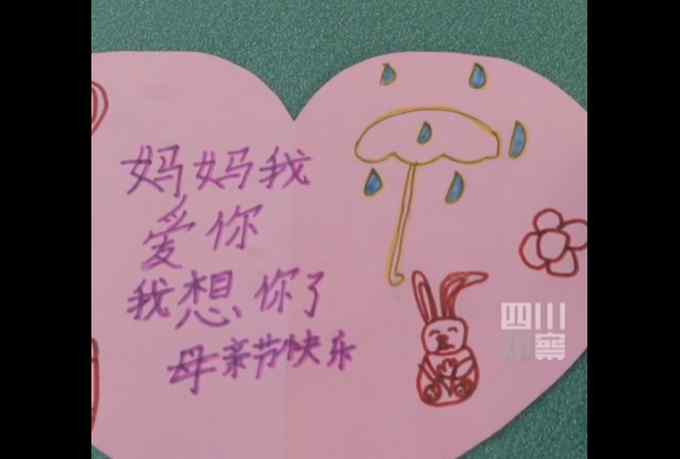 妈妈我
爱你
我想你了
母亲节快乐
四川
观察